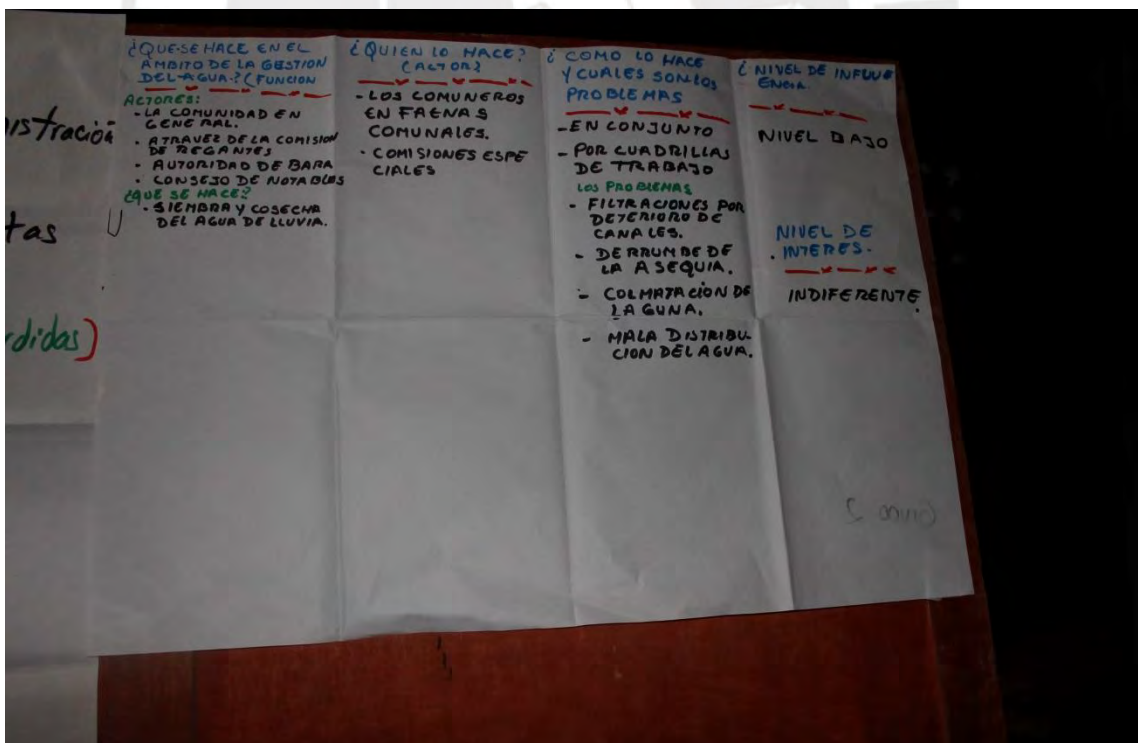 istración
tas
didas)
¿QUE SE HACE EN EL
AMBITO DE LA GESTION
DEL AGUA? (FUNCION
ACTORES:
- LA COMUNIDAD EN
GENERAL.
· ATRAVEZ DE LA COMISION
DE REGANTES
· AUTORIDAD DE BARA
· CONSEJO DE NOTABLES
¿QUE SE HACE?
· SIEMBRA Y COSECHA
DEL AGUA DE LLUVIA.
¿QUIEN LO HACE?
(ACTOR)
- LOS COMUNEROS
EN FAENAS
COMUNALES.
· COMISIONES ESPE
CIALES
¿ COMO LO HACE
Y CUALES SON LOS
PROBLEMAS
- EN CONJUNTO
- POR CUADRILLAS
DE TRABAJO
LOS PROBLEMAS
- FILTRACIONES POR
DETERIORO DE
CANALES.
- DERRUMBE DE
LA ASEQUIA.
- COLMATACION DE
LAGUNA.
- MALA DISTRIBU-
CION DEL AGUA.
¿ NIVEL DE INFLUE
ENCIA.
NIVEL BAJO
NIVEL DE
. INTERES.
INDIFERENTE.